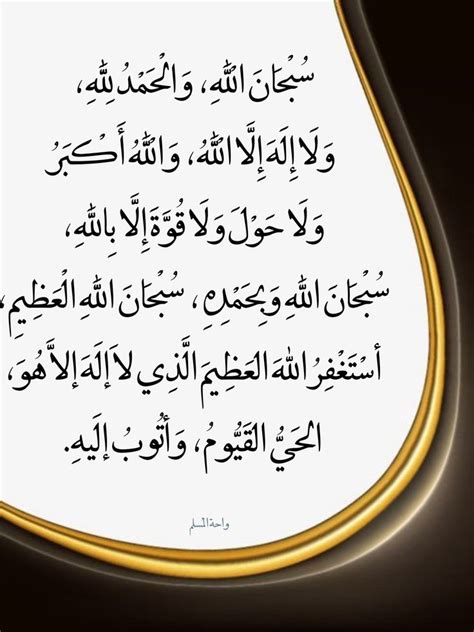 سُبْحَانَ اللهِ، وَالْحَمْدُ لِلهِ،
وَلَا إِلَهَ إِلَّا اللهُ، وَاللهُ أَكْبَرُ
وَلَا حَوْلَ وَلَا قُوَّةَ إِلَّا بِاللهِ،
سُبْحَانَ اللهِ وَبِحَمْدِهِ، سُبْحَانَ اللهِ الْعَظِيمِ،
أسْتَغْفِرُ اللهَ العَظِيمَ الَّذِي لاَ إلَهَ إلاَّ هُوَ،
الحَيُّ القَيُّومُ، وَأتُوبُ إلَيهِ.
واحة المسلم